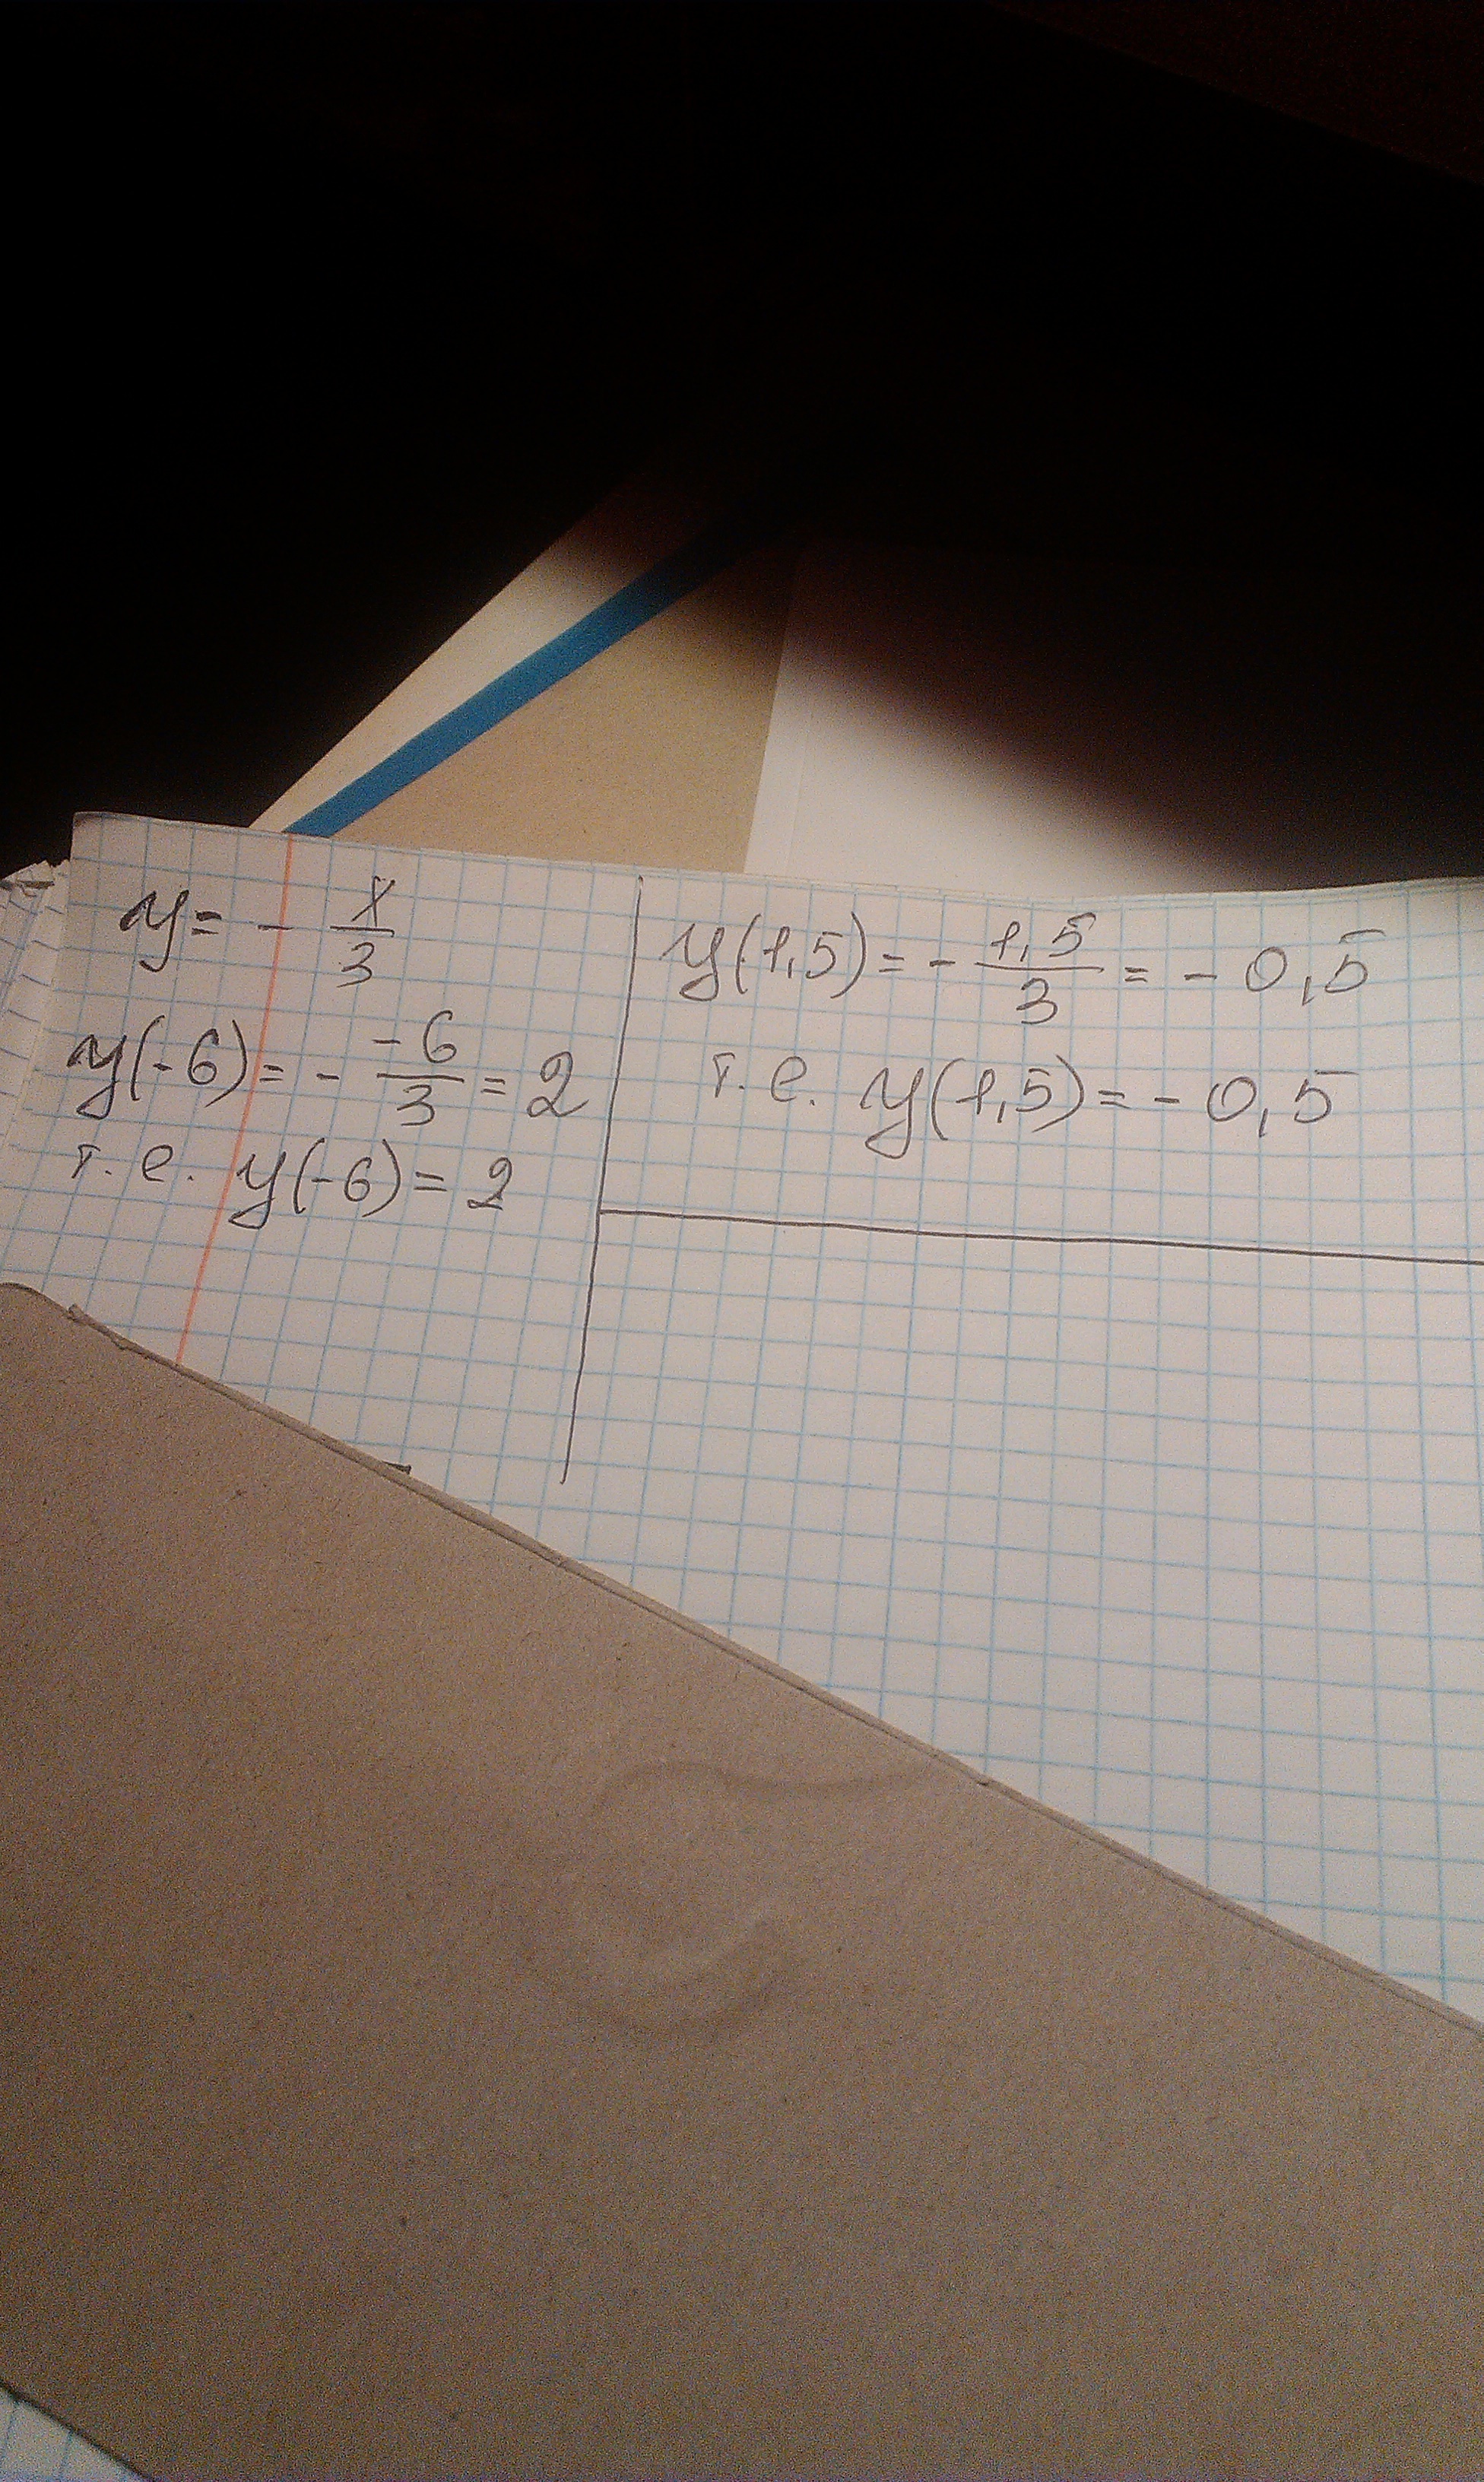 y = - x/3
y(-6) = - -6/3 = 2
т.е. y(-6) = 2
y(1,5) = - 1,5/3 = - 0,5
т.е. y(1,5) = - 0,5